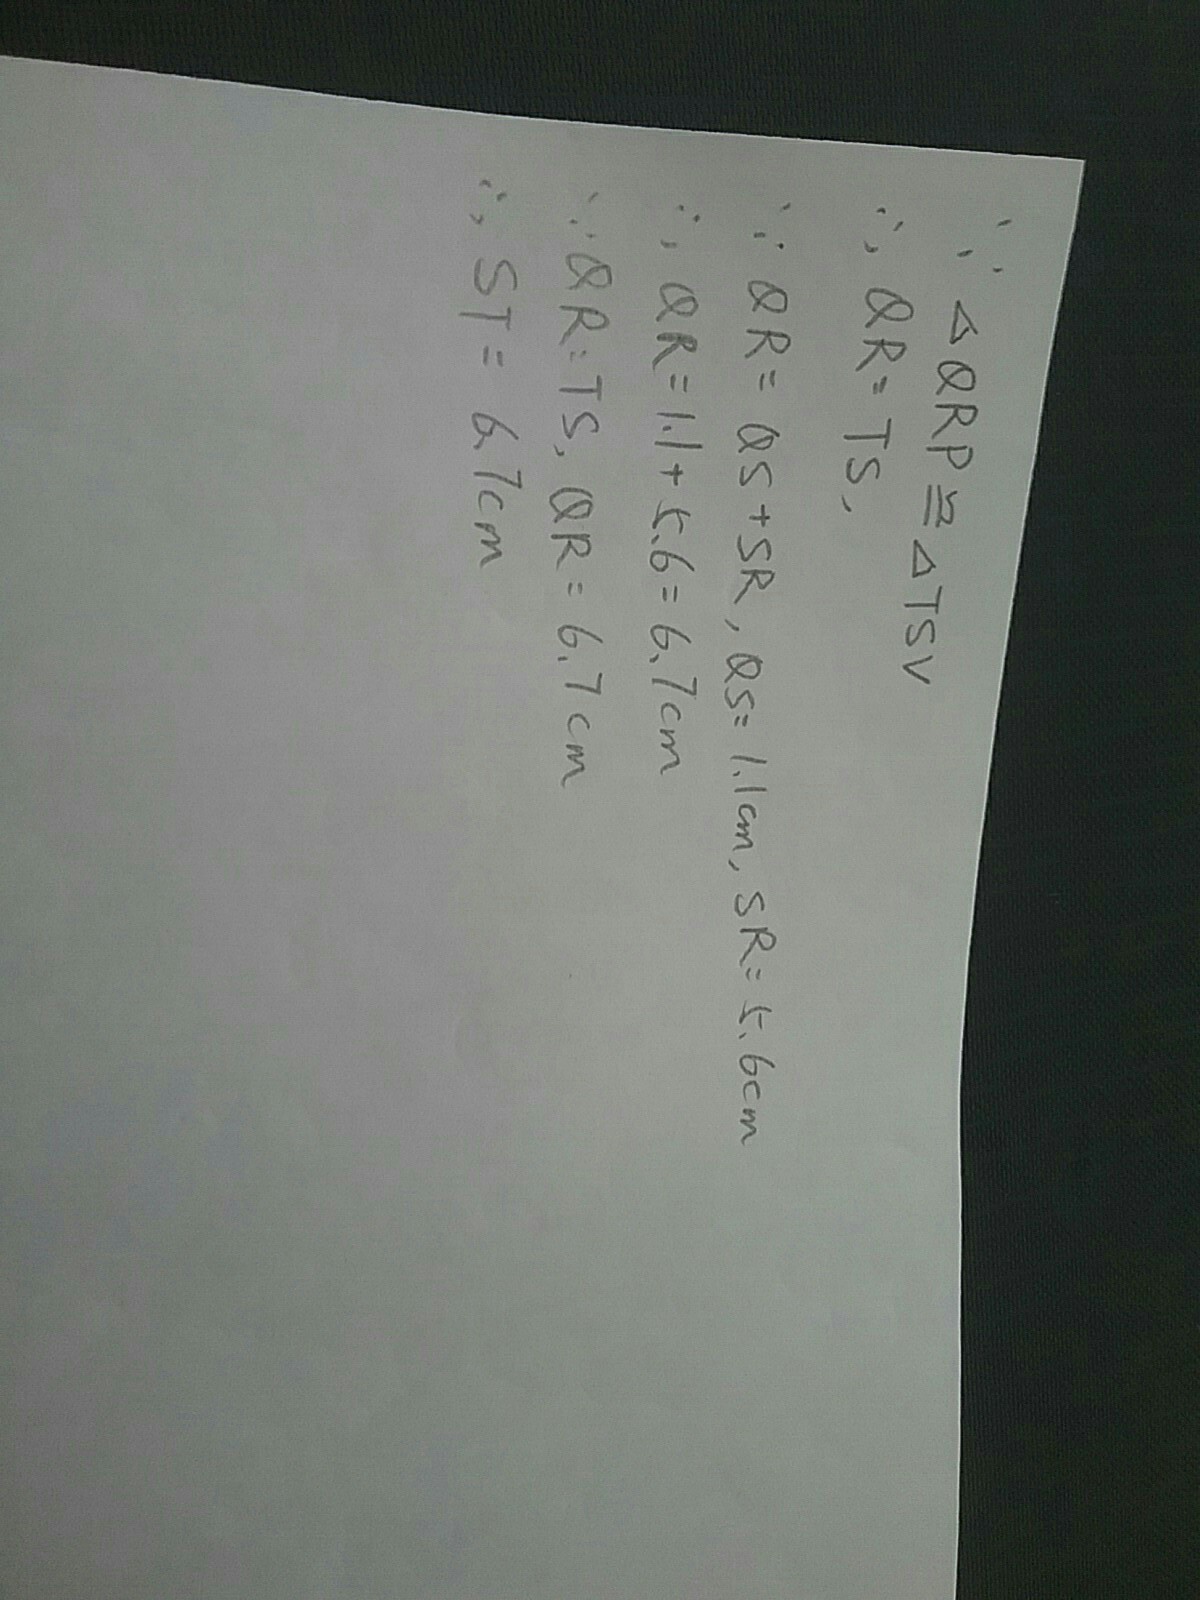 ∵ △QRP≌△TSV
∴ QR=TS,
∵ QR=QS+SR, QS=1.1cm, SR=5.6cm
∴ QR=1.1+5.6=6.7cm
∵ QR=TS, QR=6.7cm
∴ ST=6.7cm